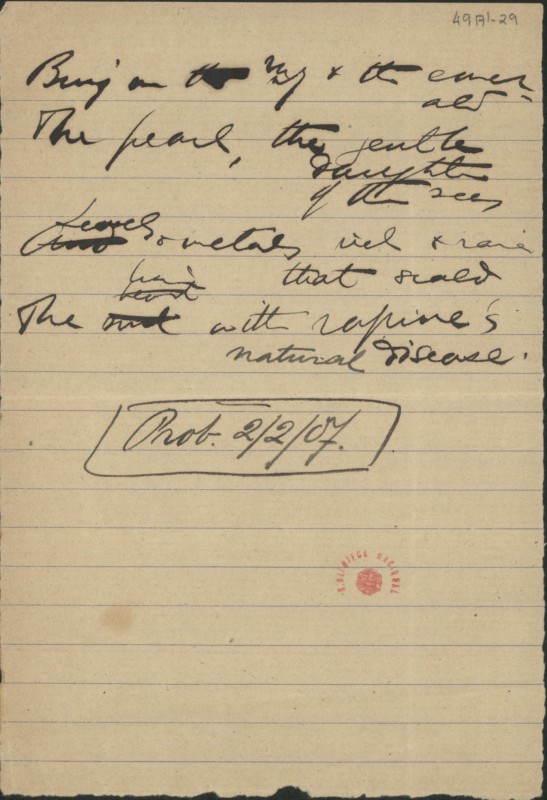 49B¹-29
Bring on the ruby & the emer-
ald
The pearl, the gentle
daughter
of the seas
Jewels
& metals rich & rare
that scald
brain
heart
The with rapine's
natural disease.
Prob. 2/2/07.
BIBLIOTECA NACIONAL